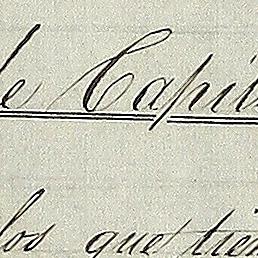 de Capit
los que tien